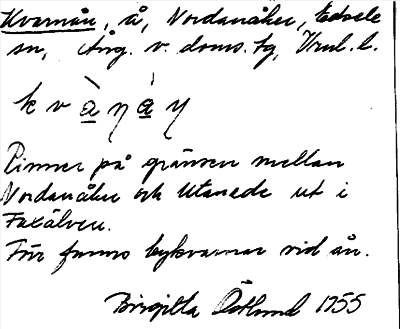 Kvarnån, å, Nordanåker, Edsele
sn, Ång. v. doms. hg, Vnl. l.
k v à ŋ á
Rinner på gränsen mellan
Nordanåker och Utanede ut i
Faxälven.
Förr funnos bykvarnar vid ån.
Birgitta Östlund 1955